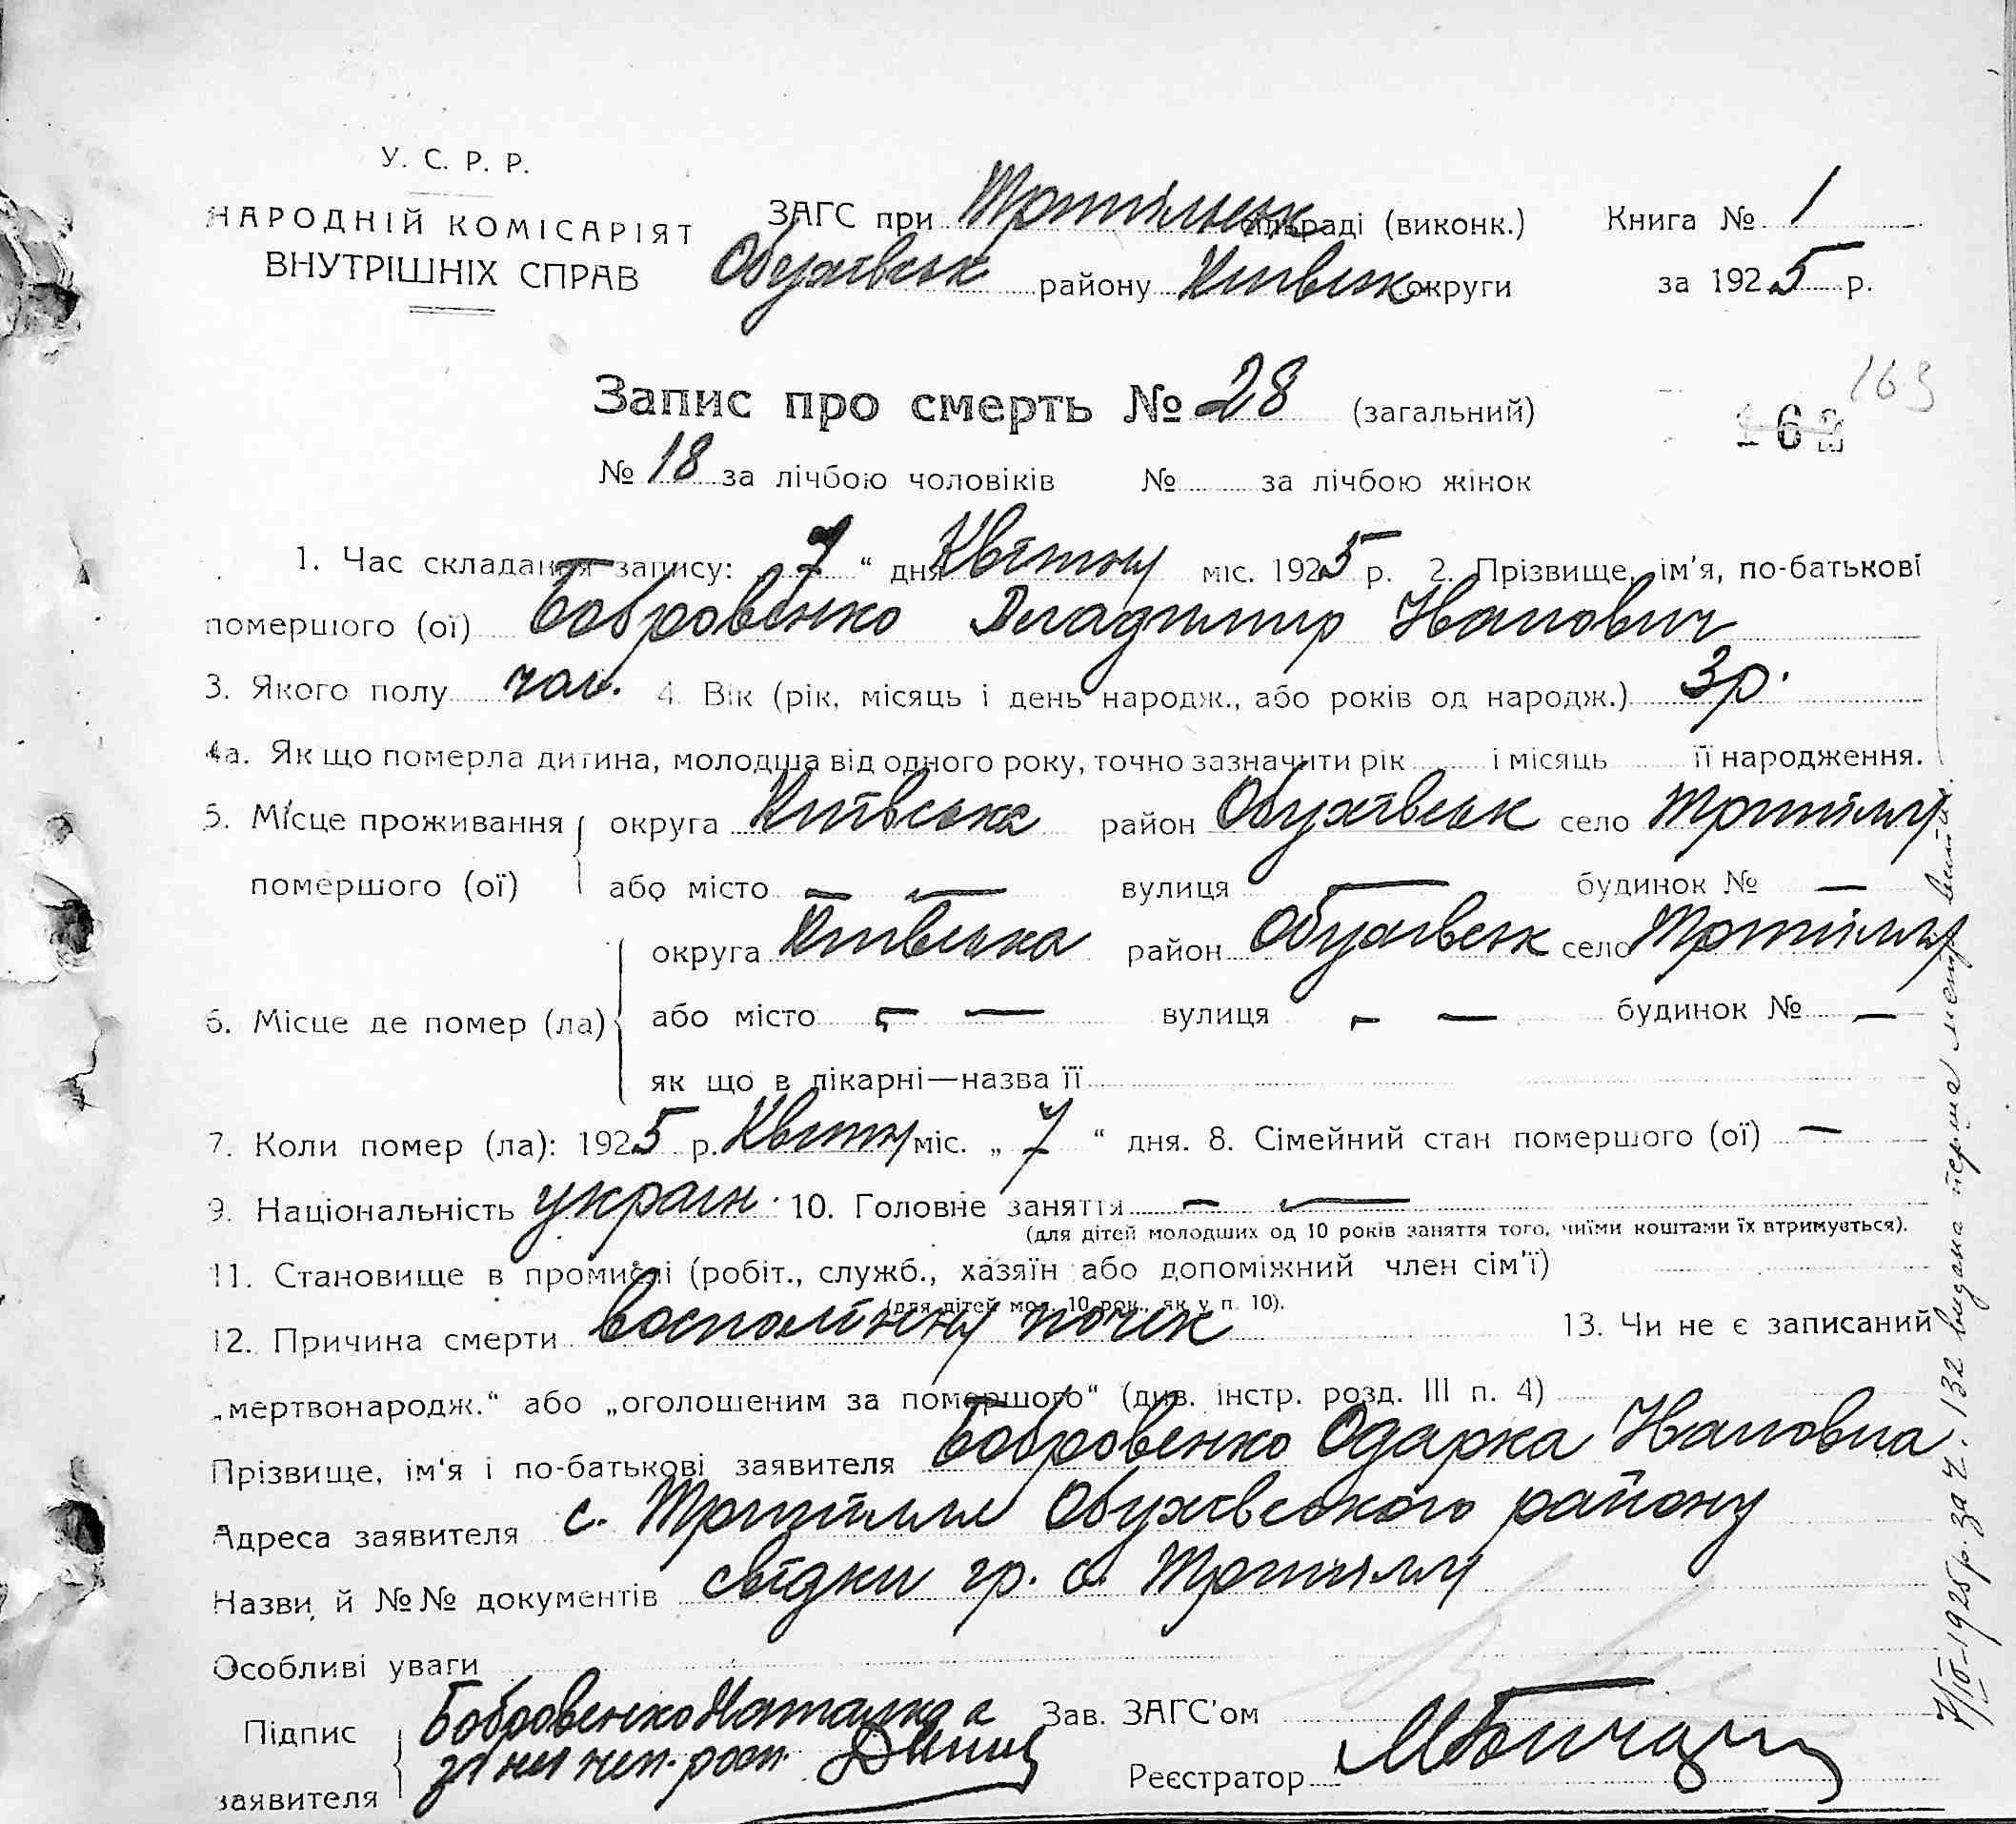 У. С. Р. Р.
НАРОДНІЙ КОМІСАРІЯТ
ВНУТРІШНІХ СПРАВ
ЗАГС при Трипільськ сільраді (виконк.)
Обухівськ району Київськ округи
Книга № 1
за 1925 р.
Запис про смерть № 28 (загальний)
163
№ 18 за лічбою чоловіків № за лічбою жінок
1. Час складання запису: 7 “ дня Квітня міс. 1925 р. 2. Прізвище, ім’я, по-батькові
помершого (ої) Бобровенко Владимир Иванович
3. Якого полу чол. 4. Вік (рік, місяць і день народж., або років од народж.) 3 р.
4а. Як що померла дитина, молодша від одного року, точно зазначити рік і місяць її народження.
5. Місце проживання округа Київська район Обухівськ село Трипілля
помершого (ої) або місто — — вулиця — будинок № —
округа Київська район Обухівськ село Трипілля
6. Місце де помер (ла) або місто — — вулиця — — будинок № —
як що в лікарні—назва її
7. Коли помер (ла): 1925 р. Квітня міс. „ 7 “ дня. 8. Сімейний стан помершого (ої) —
9. Національність україн. 10. Головне заняття — —
(для дітей молодших од 10 років заняття того, чиїми коштами їх втримується).
11. Становище в промислі (робіт., служб., хазяїн або допоміжний член сім’ї)
(для дітей мол. 10 рок., як у п. 10).
12. Причина смерти воспаління почек 13. Чи не є записаний
„мертвонародж.“ або „оголошеним за помершого“ (див. інстр. розд. III п. 4)
Прізвище, ім’я і по-батькові заявителя Бобровенко Одарка Ивановна
Адреса заявителя с. Трипілля Обухівського району
Назви й №№ документів свідки гр. с. Трипілля
Особливі уваги
Підпис
заявителя
Бобровенко Наталка а
за неї неп. росп.
Зав. ЗАГС’ом
Реєстратор
7/IV-1925 р. за ч. 132 видана перша метр. випись.